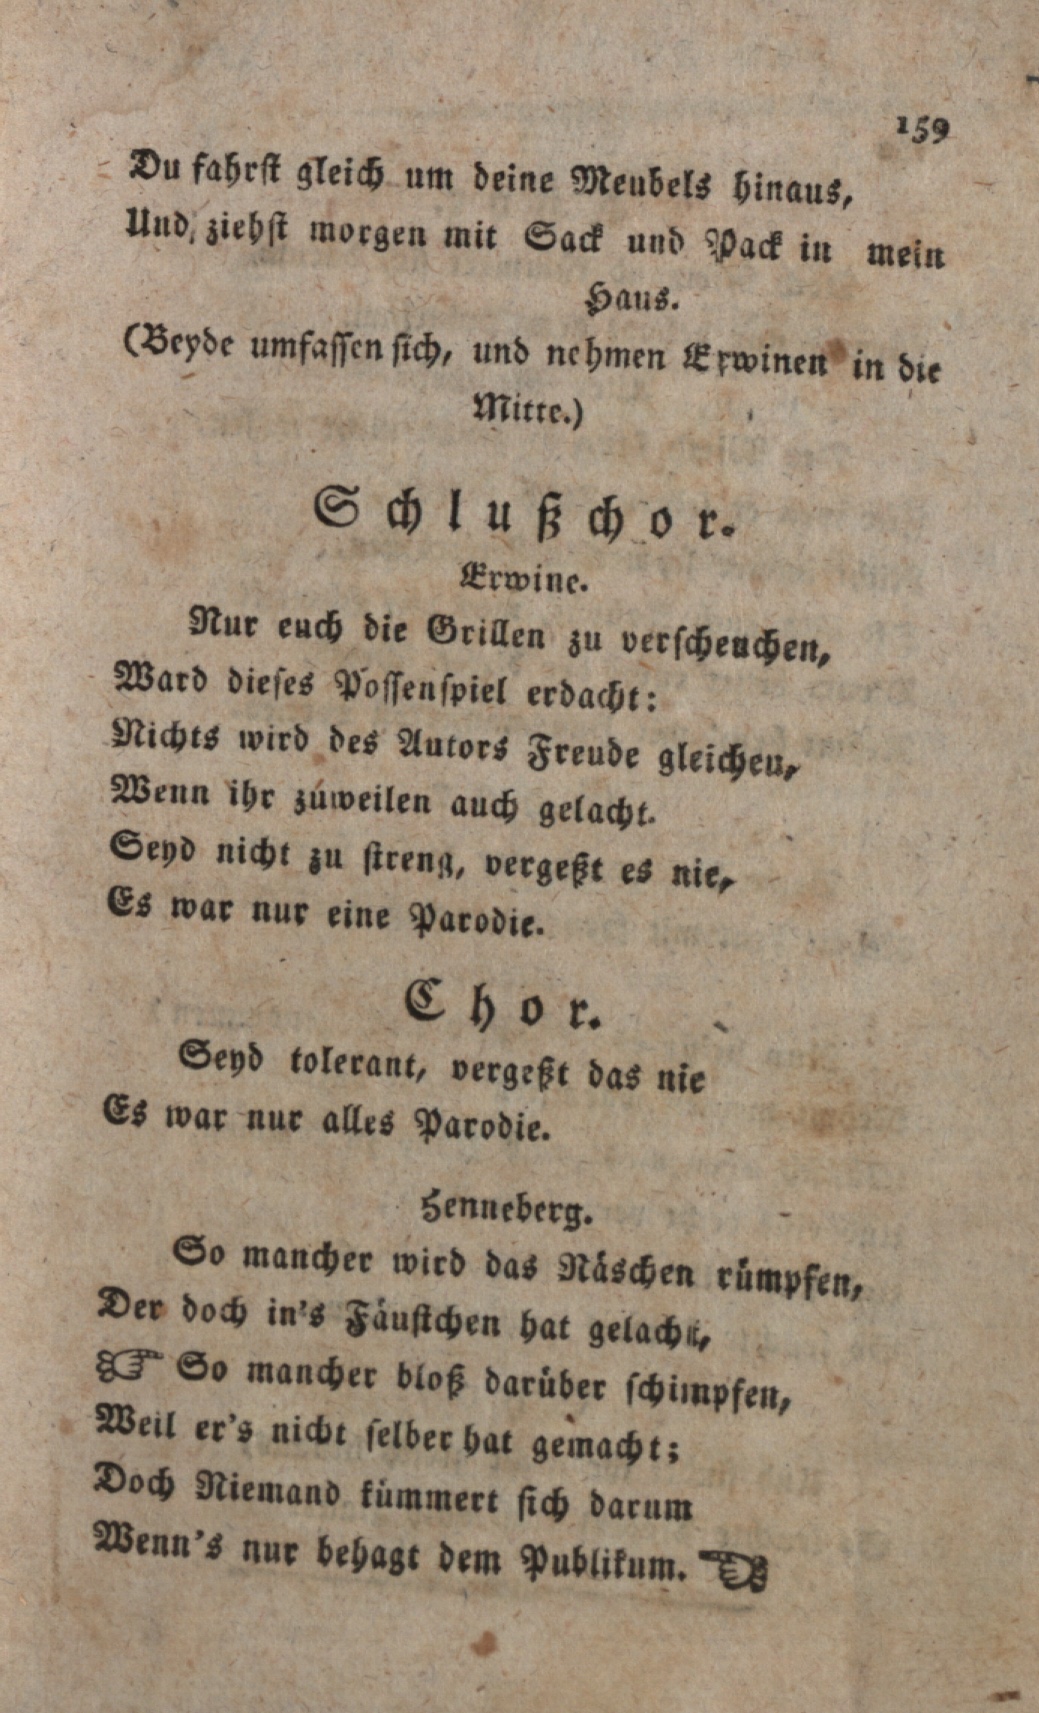 159
Du fahrst gleich um deine Meubels hinaus,
Und ziehst morgen mit Sack und Pack in mein
Haus.
(Beyde umfassen sich, und nehmen Erwinen in die
Mitte.)
Schlußchor.
Erwine.
Nur euch die Grillen zu verscheuchen,
Ward dieses Possenspiel erdacht:
Nichts wird des Autors Freude gleichen,
Wenn ihr zuweilen auch gelacht.
Seyd nicht zu streng, vergeßt es nie,
Es war nur eine Parodie.
Chor.
Seyd tolerant, vergeßt das nie
Es war nur alles Parodie.
Henneberg.
So mancher wird das Näschen rümpfen,
Der doch in's Fäustchen hat gelacht,
☞ So mancher bloß darüber schimpfen,
Weil er's nicht selber hat gemacht;
Doch Niemand kümmert sich darum
Wenn's nur behagt dem Publikum. ☜